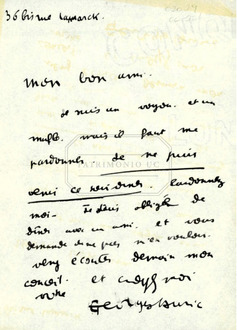 36 bis rue Lamarck.
mon bon ami.
je suis un voyou. et un
mufle. mais il faut me
pardonner. je ne puis
venir ce soir dîner. Pardonnez
moi. Je suis obligé de
dîner avec un ami. et vous
demande de ne pas m'en vouloir.
venez écouter demain mon
et croyez moi
votre
Georges Auric
PATRIMONIO UC